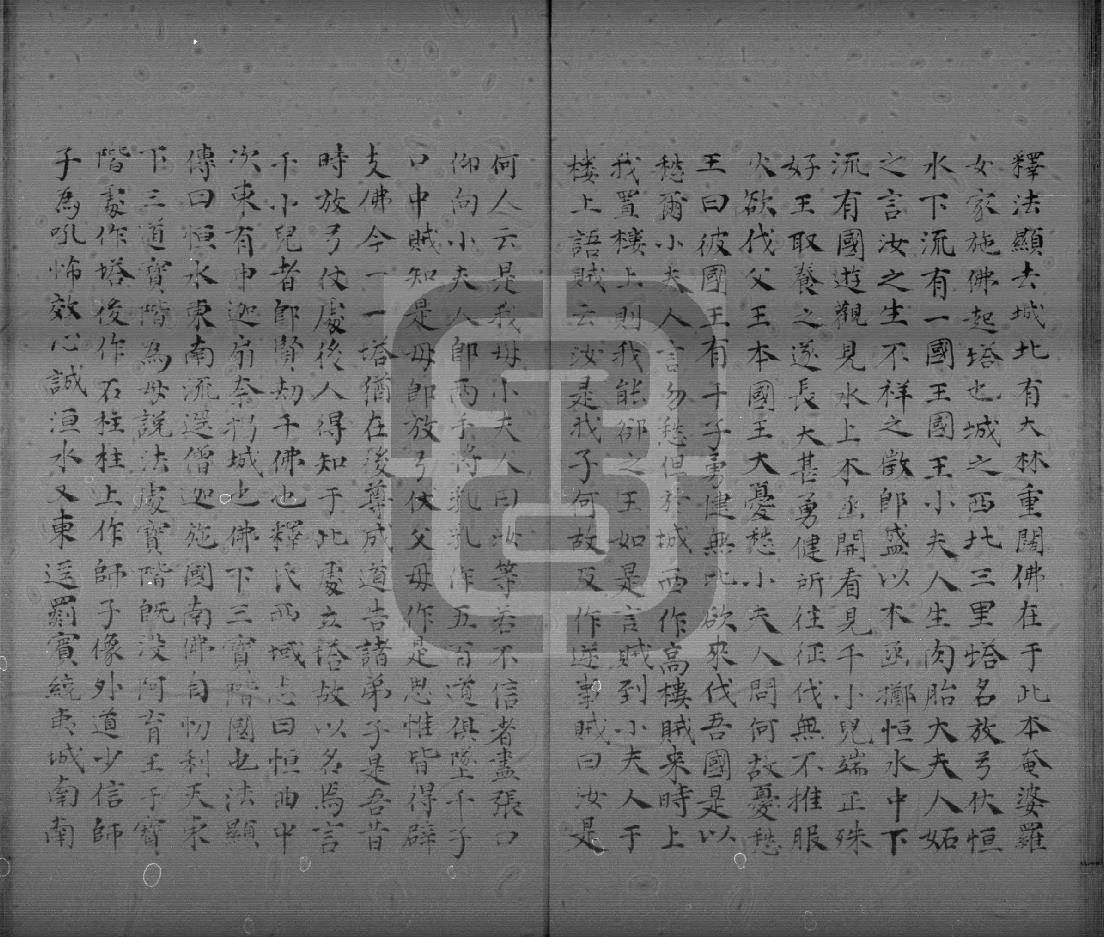 釋法顯去城北有大林重閣佛在于此本奄婆羅
女家施佛起塔也城之西北三里塔名放弓仗恒
水下流有一國王國王小夫人生肉胎大夫人妬
之言汝之生不祥之徵即盛以木函擲恒水中下
流有國遊觀見水上木函開看見千小兒端正殊
好王取養之遂長大甚勇健所往征伐無不推服
次欲伐父王本國王大憂愁小夫人問何故憂愁
王曰彼國王有千子勇健無比欲來伐吾國是以
愁爾小夫人言勿愁但於城西作高樓賊来時上
我置樓上則我能郤之王如是言賊到小夫人于
樓上語賊云汝是我子何故反作逆事賊曰汝是
何人云是我母小夫人曰汝等若不信者盡張口
仰向小夫人即兩手將乳乳作五百道俱墜千子
口中賊知是母即放弓仗父母作是思惟皆得辟
支佛今一一塔猶在後尊成道告諸弟子是吾昔
時放弓仗處後人得知于此處立塔故以名焉言
千小兒者即賢劫千佛也釋氏西域志曰恒曲中
次東有申迦扇奈揭城也佛下三寶階國也法顯
傳曰恒水東南流逕僧迦施國南佛自忉利天東
下三道寶階為母説法處寶階既没阿育王于寶
階處作塔後作石柱柱上作師子像外道少信師
子為吼怖效心誠洹水又東逕罽賓繞夷城南南